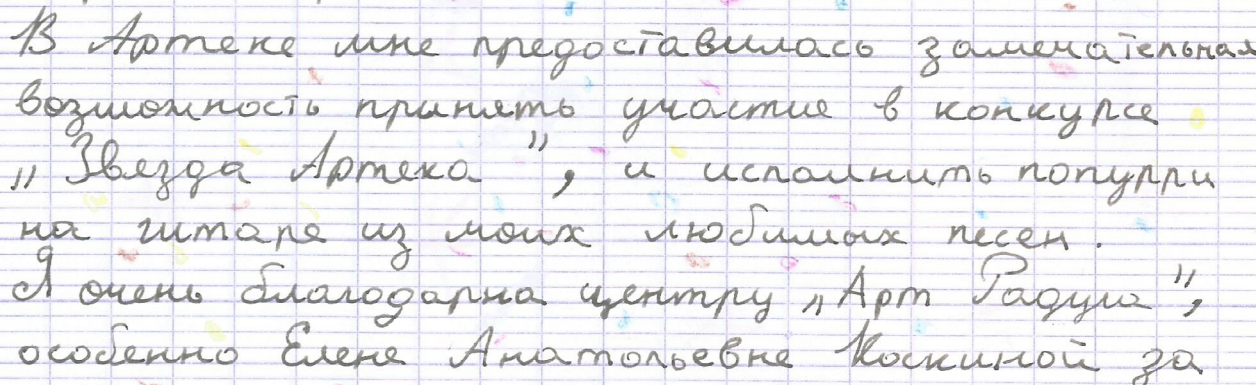 В Артеке мне предоставилась замечательная
возможность принять участие в конкурсе
„Звезда Артека", и исполнить попурри
на гитаре из моих любимых песен.
Я очень благодарна центру „Арт Радуга",
особенно Елене Анатольевне Коскиной за